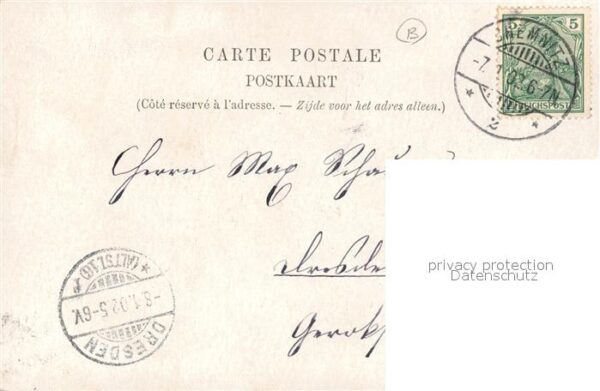 B
CARTE POSTALE
POSTKAART
(Côté réservé à l'adresse. — Zijde voor het adres alleen.)
5 5
REICHSPOST
CHEMNITZ
-7.1.02.6-7N.
* 2 *
Herrn Max Scha
Dresde
Gerok
privacy protection
Datenschutz
DRESDEN
-8.1.02.5-6V.
* (ALTST.) 16